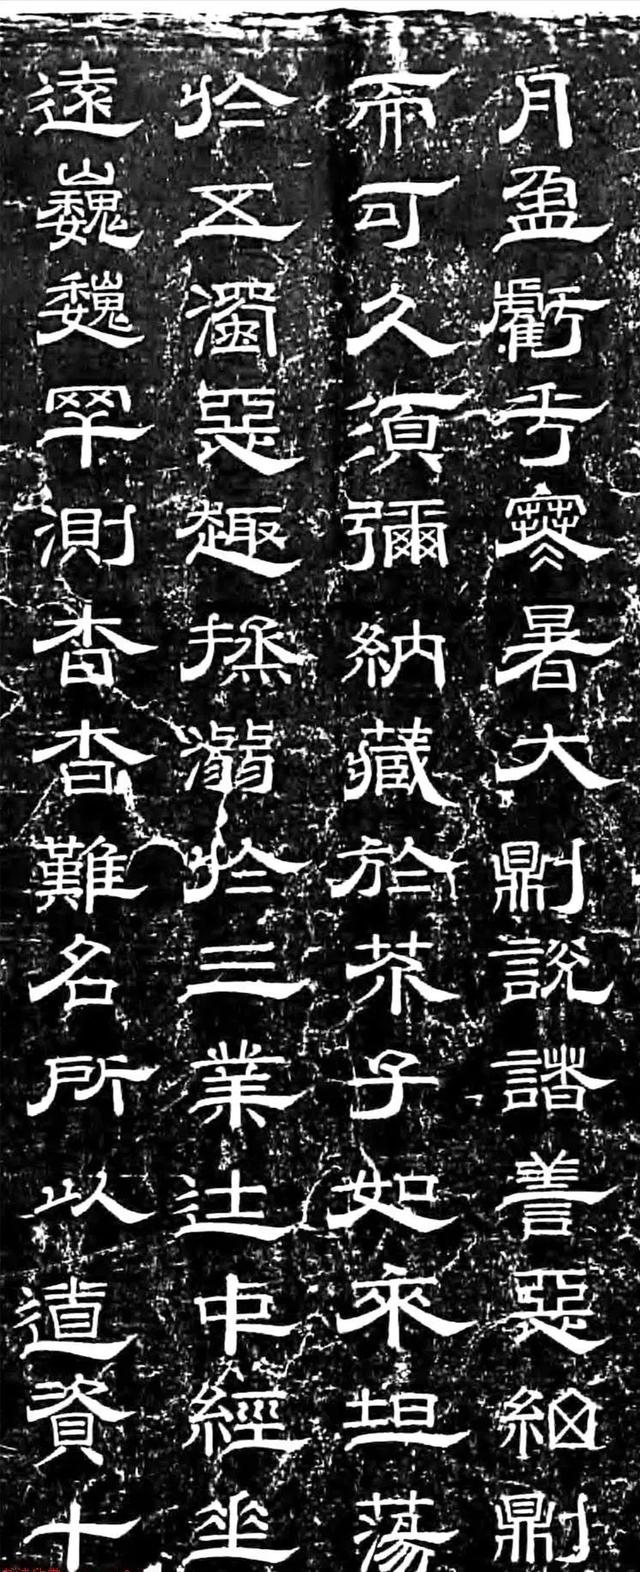 月盈虧乎寒暑大則說諸善惡細則
而可久須彌納藏於芥子如來坦蕩
於五濁惡趣拯溺於三業途中經坐
遠巍巍罕測杳杳難名所以道資十